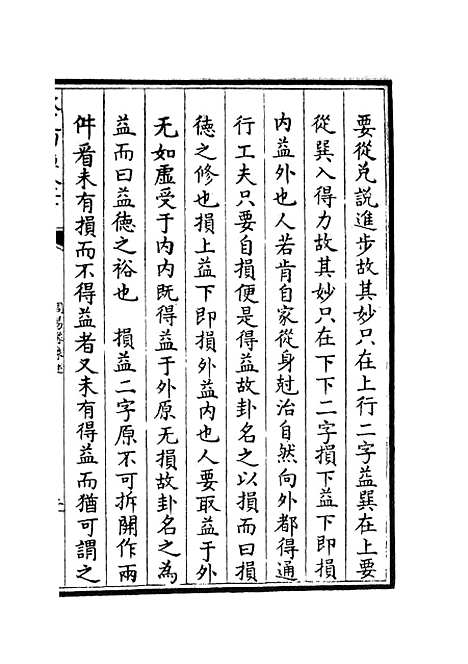 要從兌說進步故其妙只在上行二字益巽在上要
從巽入得力故其妙只在下下二字損下益下即損
內益外也人若肯自家從身尅治自然向外都得通
行工夫只要自損便是得益故卦名之以損而曰損
德之修也損上益下即損外益內也人要取益于外
无如虛受于內內既得益于外原无損故卦名之為
益而曰益德之裕也　損益二字原不可拆開作兩
件看未有損而不得益者又未有得益而猶可謂之